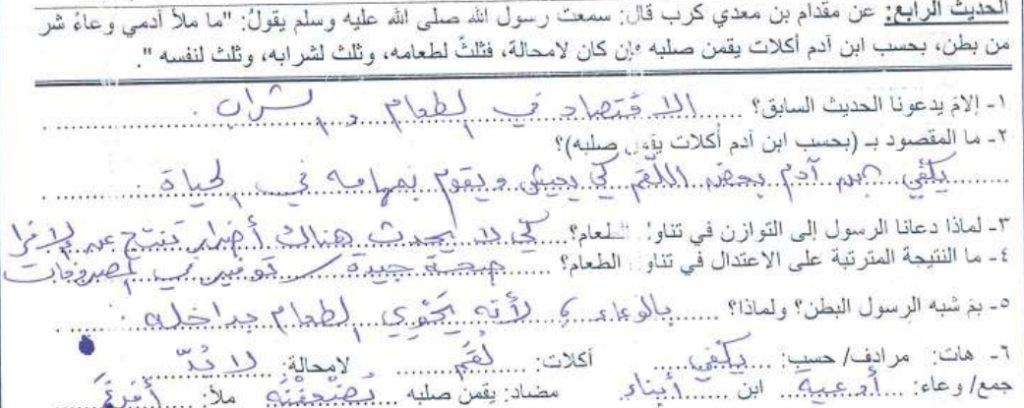 الحديث الرابع: عن مقدام بن معدي كرب قال: سمعت رسول الله صلى الله عليه وسلم يقول: "ما ملأ آدمي وعاءً شر
من بطن، بحسب ابن آدم أكلات يقمن صلبه فإن كان لامحالة، فثلثٌ لطعامه، وثلث لشرابه، وثلث لنفسه ".
١- إلامَ يدعونا الحديث السابق؟ الاقتصاد في الطعام والشراب.
٢- ما المقصود بـ (بحسب ابن آدم أكلات يقمن صلبه)؟
يكفي ابن آدم بعض اللّقم كي يعيش ويقوم بمهامه في الحياة.
٣- لماذا دعانا الرسول إلى التوازن في تناول الطعام؟ كي لا يحدث هناك أضرار تنتج عن الإفرا
٤- ما النتيجة المترتبة على الاعتدال في تناول الطعام؟ صحة جيدة توفير في المصروفات
٥- بمَ شبه الرسول البطن؟ ولماذا؟ بالوعاء ؛ لأنه يَحْوِي الطعام بداخله.
٦- هات: مرادف/ حسب: يكفي أكلات: لُقَم لامحالة: لا بُدّ
جمع/ وعاء: أوعية ابن أبناء مضاد: يقمن صلبه تُضْعِفْنَه ملأ: أفرغَ